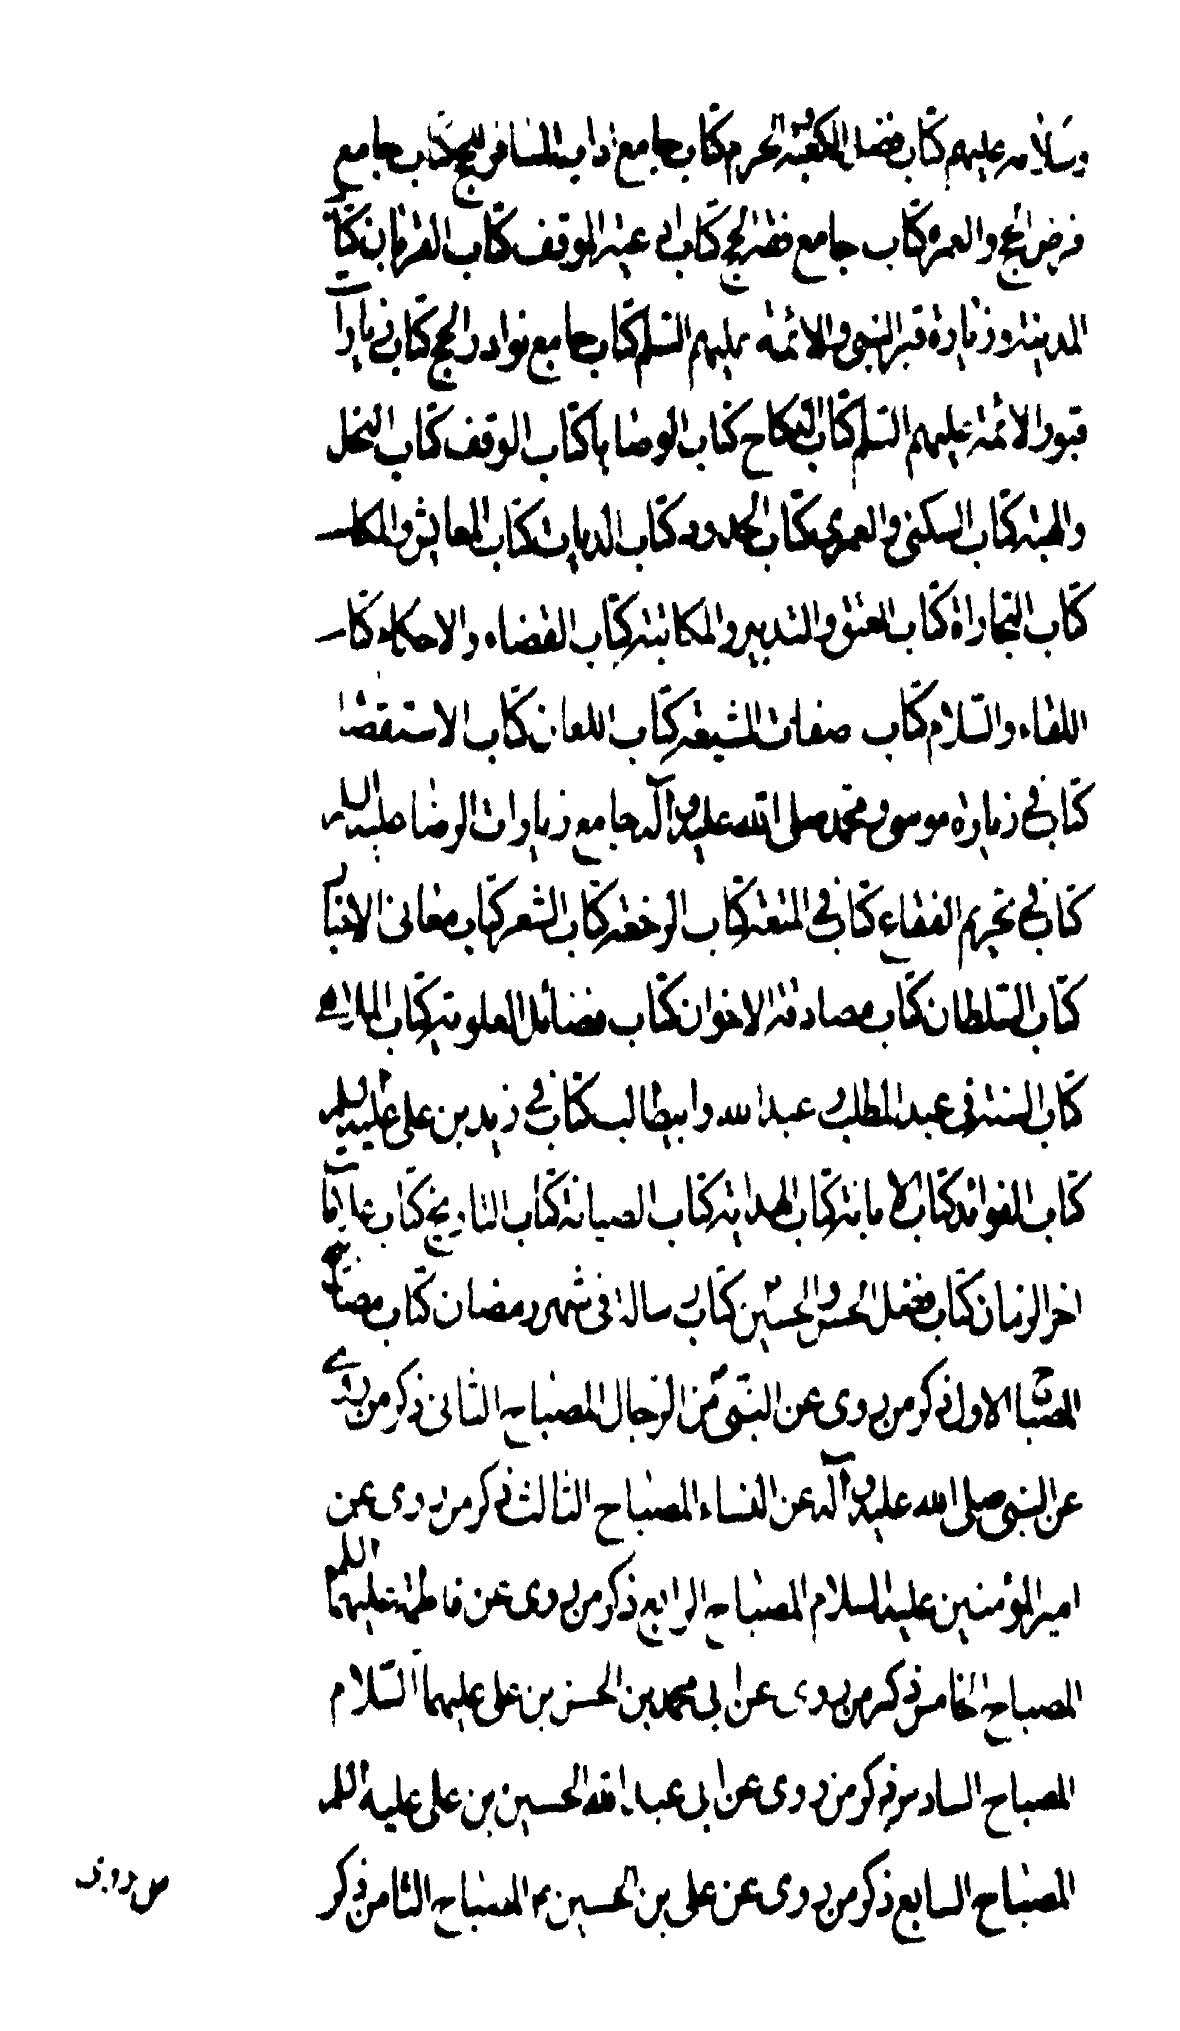 وسلامه عليهم كتاب فضل الكعبة والحرم كتاب جامع اداب المسافر للحج كتاب جامع
فرض الحج والعمرة كتاب جامع فقه الحج كتاب ادعية الموقف كتاب القربان كتاب
المدينة وزيارة قبر النبي والائمة عليهم السلم كتاب جامع نوادر الحج كتاب زيارات
قبور الائمة عليهم السلم كتاب النكاح كتاب الوصايا كتاب الوقف كتاب النحل
والهبة كتاب السكنى والعمرى كتاب الحدود كتاب الديات كتاب المعايش والمكاسب
كتاب التجاراة كتاب العتق والتدبير والمكاتبة كتاب القضاء والاحكام كتاب
اللقاء والسلام كتاب صفات الشيعة كتاب اللعان كتاب الاستسقاء
كتاب في زيارة موسى ومحمد صلى الله عليه وآله جامع زيارات الرضا عليه السلم
كتاب في تحريم الفقاع كتاب في المتعة كتاب الرجعة كتاب الشعر كتاب معانى الاخبار
كتاب السلطان كتاب مصادقة الاخوان كتاب فضائل العلوية كتاب الملاهي
كتاب السنة في عبد المطلب وعبد الله وابيطالب كتاب في زيد بن على عليه السلم
كتاب الفوائد كتاب الامانة كتاب الهداية كتاب الصيانة كتاب التاريخ كتاب علامات
اخر الزمان كتاب فضل الحسن والحسين كتاب رسالة في شهر رمضان كتاب مصابيح
المصباح الاول ذكر من روى عن النبى ص من الرجال المصباح الثانى ذكر من روى
عن النبى صلى الله عليه وآله عن النساء المصباح الثالث ذكر من روى عن
امير المؤمنين عليه السلام المصباح الرابع ذكر من روى عن فاطمة عليها السلم
المصباح الخامس ذكر من روى عن ابى محمد بن الحسن بن على عليهما السلام
المصباح السادس ذكر من روى عن ابى عبد الله الحسين بن على عليه السلم
المصباح السابع ذكر من روى عن على بن الحسين ع المصباح الثامن ذكر
من روى